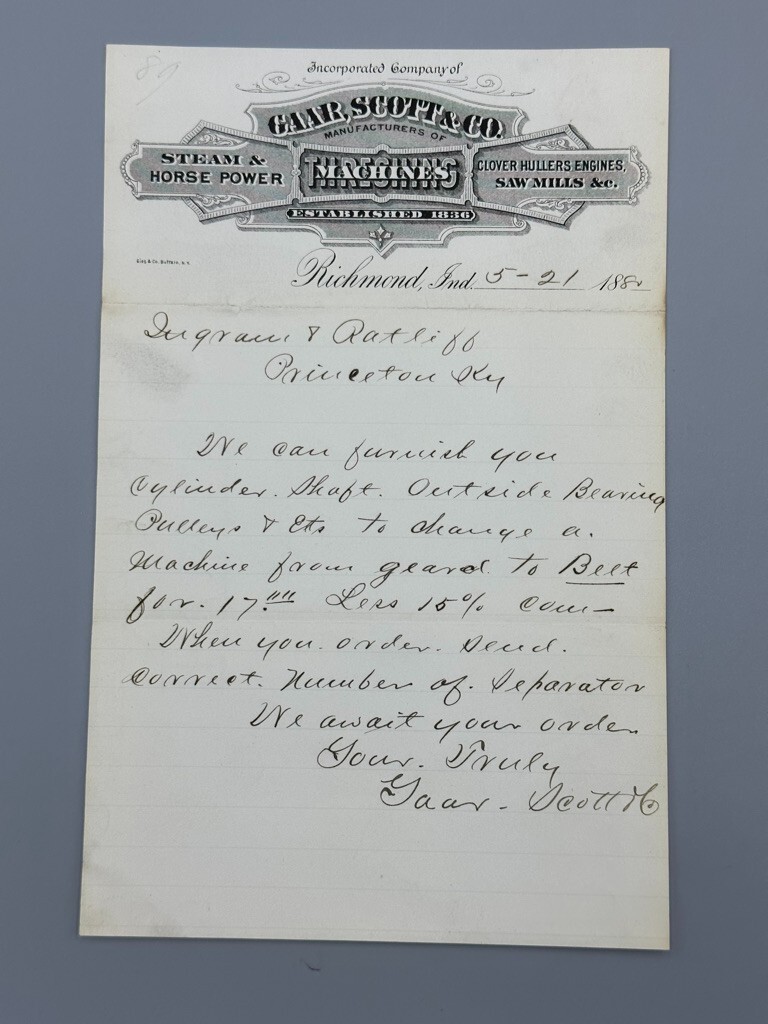 89
Incorporated Company of
GAAR, SCOTT & CO.
MANUFACTURERS OF
STEAM & HORSE POWER
THRESHING MACHINES
CLOVER HULLERS, ENGINES, SAW MILLS &c.
ESTABLISHED 1836
Richmond, Ind. 5-21 1880
Ingram & Ratliff
Princeton Ky
We can furnish you
Cylinder. Shaft. Outside Bearing
Pulleys & Ets to change a.
Machine from geard. to Belt
for. 17."" Less 15% com-
When you. order. send.
correct. Number of. Separator
We await your order.
Your. Truly
Gaar. Scott & Co